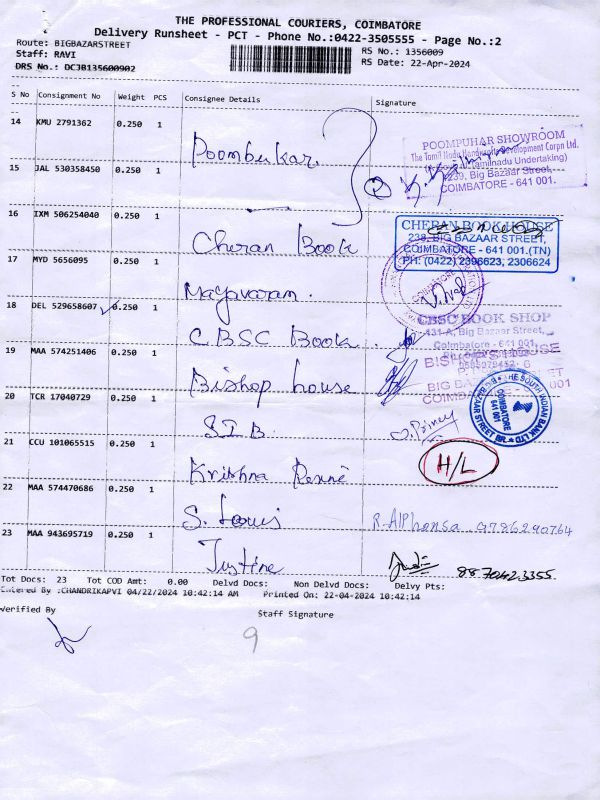 THE PROFESSIONAL COURIERS, COIMBATORE
Delivery Runsheet - PCT - Phone No.:0422-3505555 - Page No.:2
Route: BIGBAZARSTREET
RS No.: 1356009
Staff: RAVI
RS Date: 22-Apr-2024
DRS No.: DCJB135600902
S No Consignment No Weight PCS Consignee Details Signature
14 KMU 2791362 0.250 1 Poombukar
POOMPUHAR SHOWROOM
The Tamil Nadu Handicrafts Development Corpn Ltd.
Tamilnadu Undertaking)
Big Bazaar Street,
COIMBATORE - 641 001.
15 JAL 530358450 0.250 1
16 IXM 506254040 0.250 1 Cheran Book
CHERAN BOOK HOUSE
238, BIG BAZAAR STREET,
COIMBATORE - 641 001.(TN)
PH: (0422) 2396623, 2306624
17 MYD 5656095 0.250 1 Mayavaram.
18 DEL 529658607 0.250 1 CBSC Book
CBSC BOOK SHOP
131-A, Big Bazaar Street,
Coimbatore - 641 001.
19 MAA 574251406 0.250 1 Bishop house
BISHOP'S HOUSE
BIG BAZAAR STREET
COIMBATORE 001
20 TCR 17040729 0.250 1 SIB
THE SOUTH INDIAN BANK LTD
BIG BAZAAR STREET BR.
COIMBATORE
641 001
21 CCU 101065515 0.250 1 Krishna
H/L
22 MAA 574470686 0.250 1 S. Louis
R. Alphonsa 9786290764
23 MAA 943695719 0.250 1 Justine
8870423355
Tot Docs: 23 Tot COD Amt: 0.00 Delvd Docs: Non Delvd Docs: Delvy Pts:
Entered By :CHANDRIKAPVI 04/22/2024 10:42:14 AM Printed On: 22-04-2024 10:42:14
Verified By
Staff Signature
9